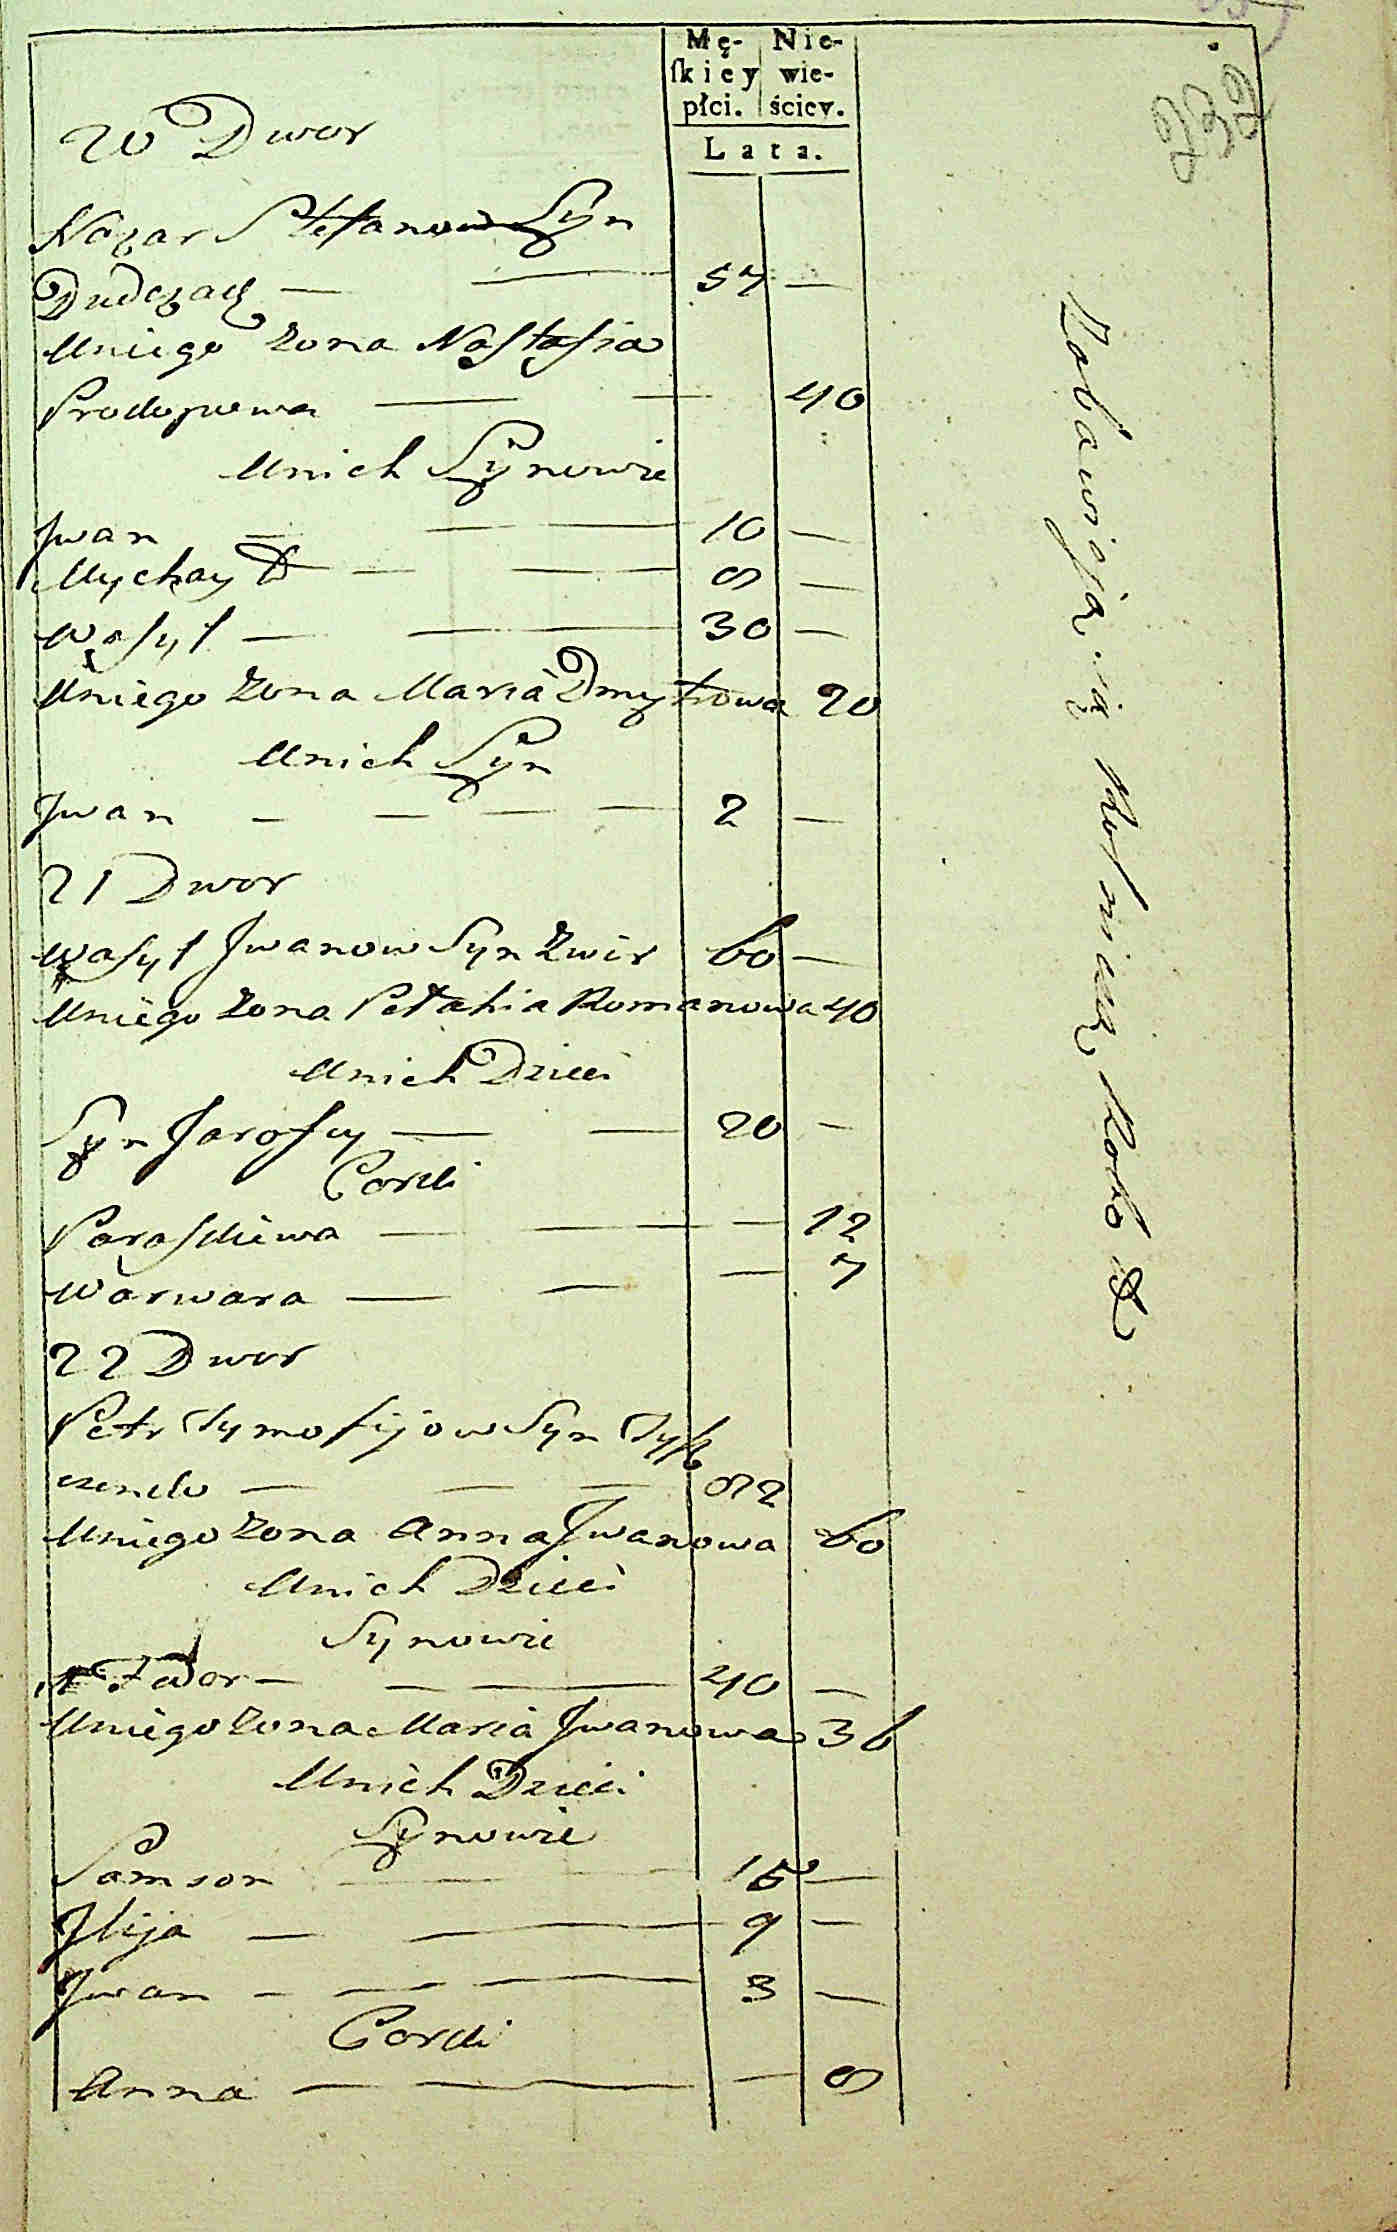 Mę- Nie-
ſkiey wie-
płci. ściey.
Lata.
232
20 Dwor
Nazar Stefanow Syn
Dudczak — — 57 —
Uniego Zona Nastasia
Prokopowa — — 40
Unich Synowie
Jwan — — — 10 —
Mychayło — — — 8 —
Wasyl — — 30 —
Uniego Zona Maria Dmytrowa 20
Unich Syn
Jwan — — — — 2 —
21 Dwor
Wasyl Jwanow Syn Zwir 60 —
Uniego Zona Pełahia Romanowa 40
Unich Dzieci
Syn Jarosky — — 20 —
Corki
Paraskiewa — — — 12
Warwara — — — 7
22 Dwor
Petr Tymofijow Syn
— — — 82
Uniego Zona Anna Jwanowa 60
Unich Dzieci
Synowie
1 Fedor — — — 40 —
Uniego Zona Maria Jwanowa 36
Unich Dzieci
Synowie
Samson — — 15 —
Jlija — — 9 —
Jwan — — — 3 —
Corki
Anna — — — 8
Zabawiają się Rolniczą Robotą